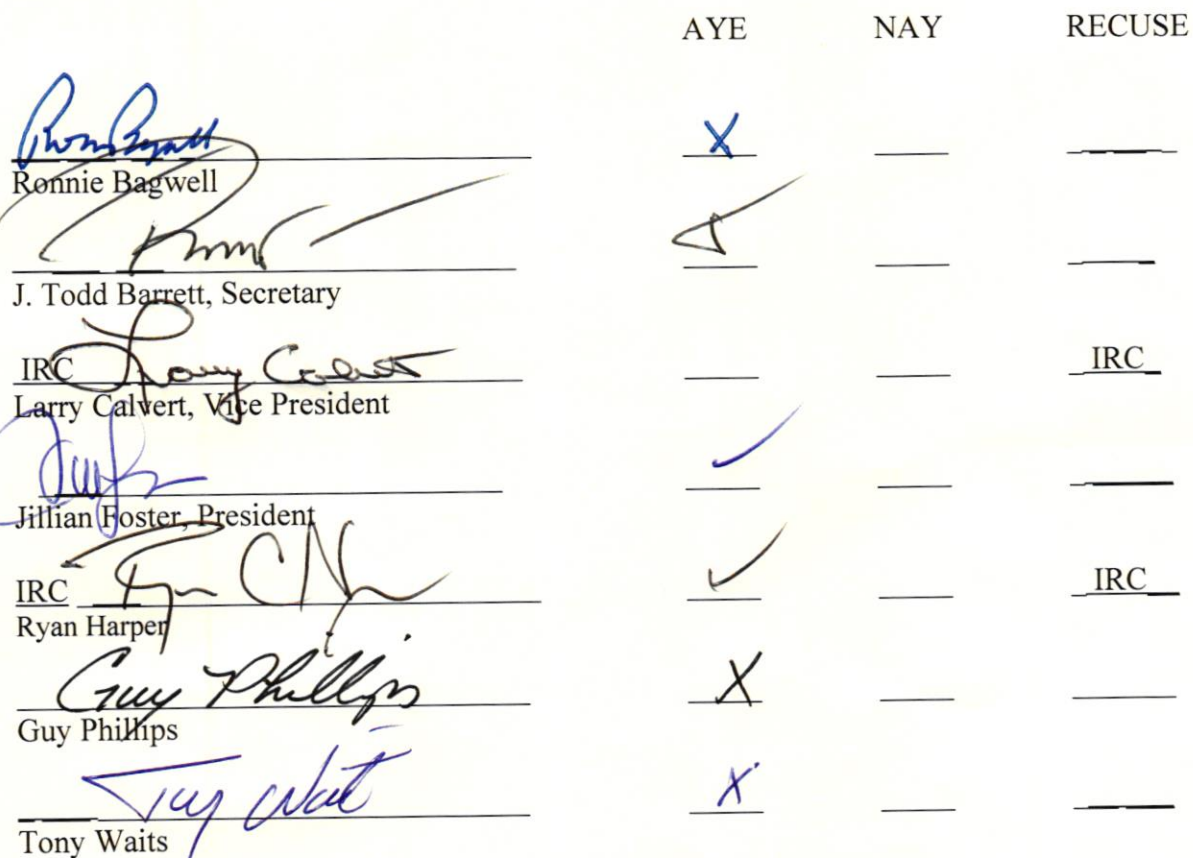 AYE NAY RECUSE
X
Ronnie Bagwell
J. Todd Barrett, Secretary
IRC Larry Calvert IRC
Larry Calvert, Vice President
✓
Jillian Foster, President
IRC ✓ IRC
Ryan Harper
Guy Phillips X
Guy Phillips
Tony Wait X
Tony Waits